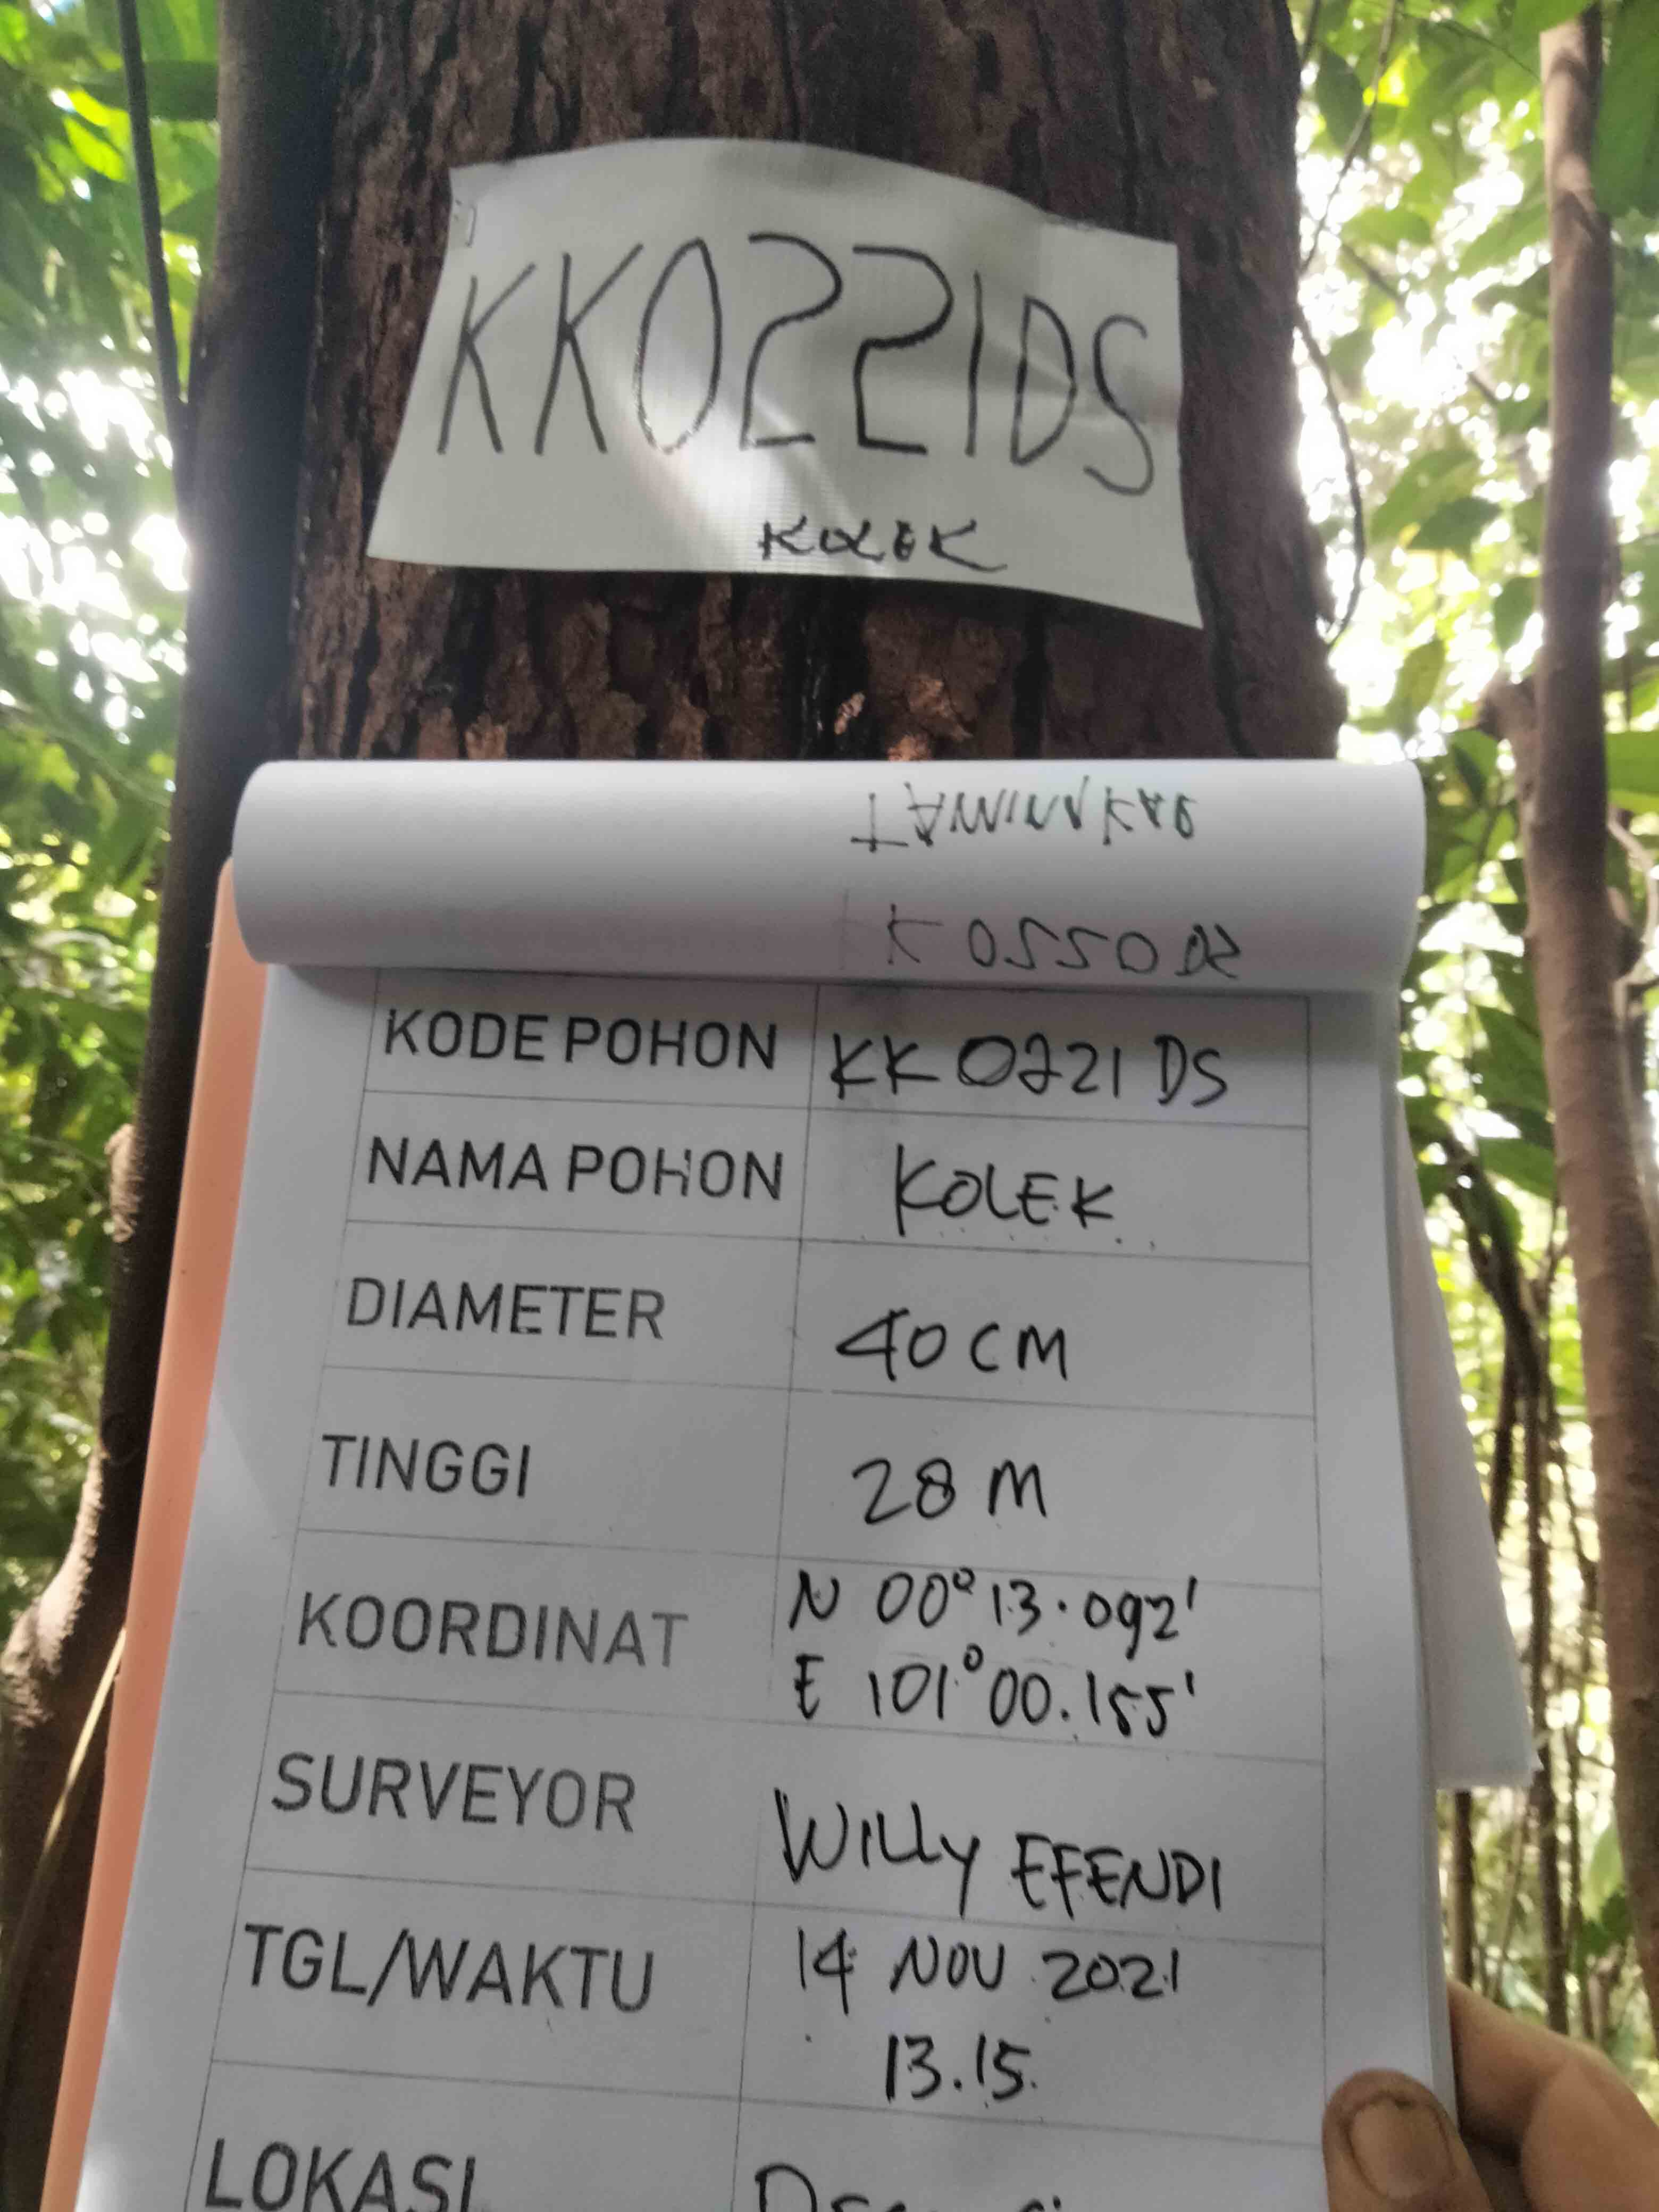 KK0221DS
KOLEK
KODE POHON KK 0221 DS
NAMA POHON KOLEK
DIAMETER 40 CM
TINGGI 28 M
KOORDINAT N 00° 13.092'
E 101° 00.155'
SURVEYOR WILLY EFENDI
TGL/WAKTU 14 NOV 2021
13.15
LOKASI